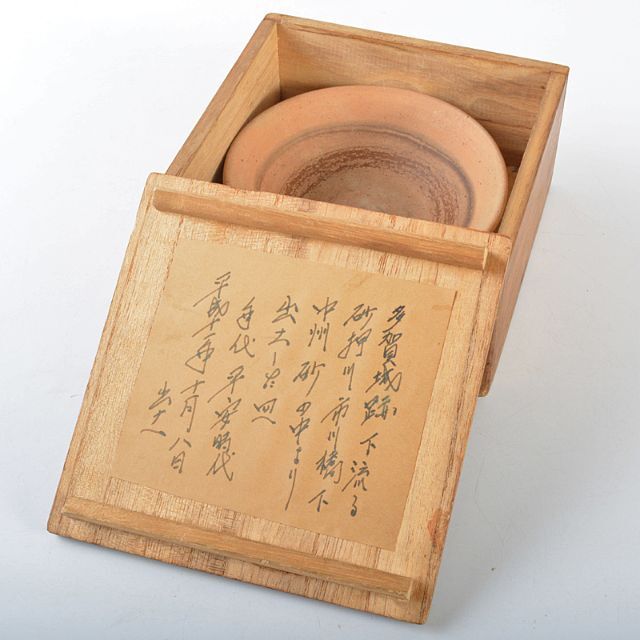 多賀城跡下流る
砂押川市川橋下
中州砂の中より
出土
年代平安時代
平成十一年十一月八日
出土